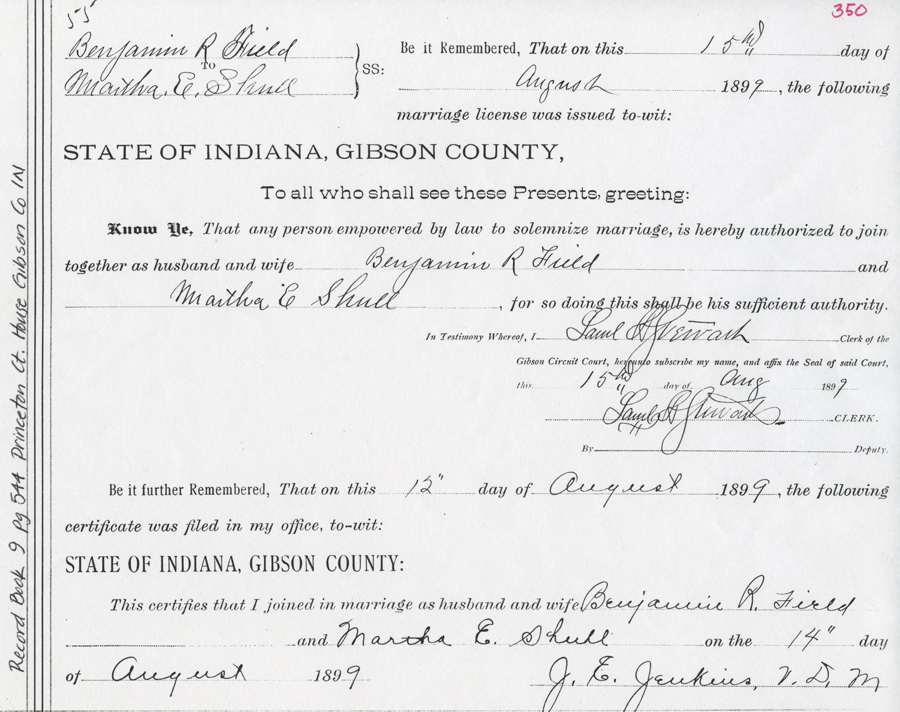 55
350
Benjamin R Field
TO
Martha. E. Shull
SS:
Be it Remembered, That on this 15th day of
August 1899, the following
marriage license was issued to-wit:
STATE OF INDIANA, GIBSON COUNTY,
To all who shall see these Presents, greeting:
Know Ye, That any person empowered by law to solemnize marriage, is hereby authorized to join
together as husband and wife Benjamin R Field and
Martha E Shull, for so doing this shall be his sufficient authority.
In Testimony Whereof, I Saml H Stewart Clerk of the
Gibson Circuit Court, hereunto subscribe my name, and affix the Seal of said Court,
this 15th day of Aug 1899
Saml H Stewart CLERK.
By Deputy.
Be it further Remembered, That on this day of August 1899, the following
certificate was filed in my office, to-wit:
STATE OF INDIANA, GIBSON COUNTY:
This certifies that I joined in marriage as husband and wife Benjamin R. Field
and Martha E. Shull on the 14" day
of August 1899 J. E. Jenkins, V. D. M
Record Book 9 Pg 544 Princeton Ct. House Gibson Co IN